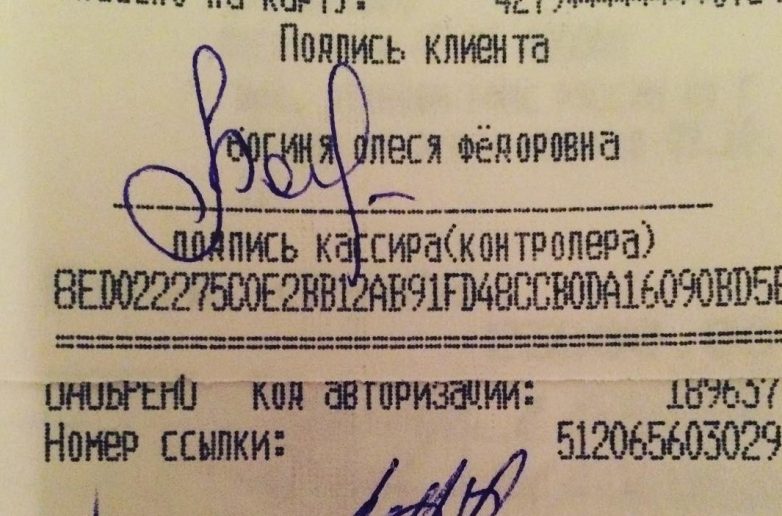 на карту:
Подпись клиента
богиня олеся фёдоровна
подпись кассира(контролера)
8ED022275C0E2BB12AB91FD48CCB0DA16090BD5B
ОДОБРЕНО Код авторизации: 189637
Номер ссылки: 512065603029